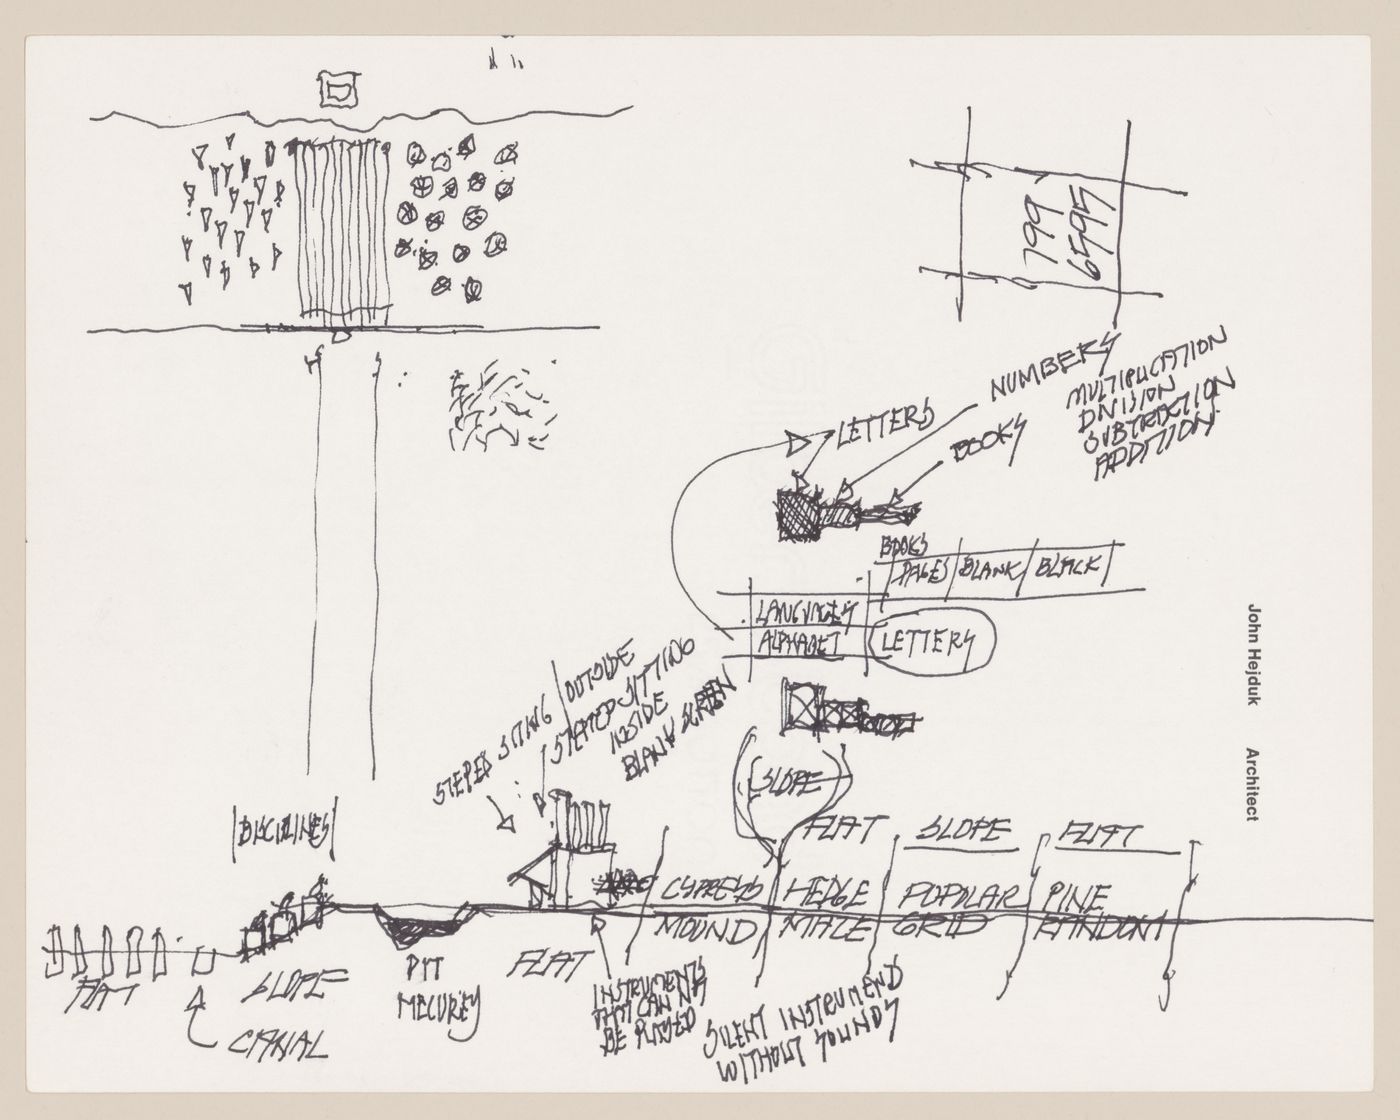 799
6595
NUMBERS
MULTIPLICATION
DIVISION
SUBTRACTION
ADDITION
LETTERS
BOOKS
BOOKS
PAGES BLANK BLACK
LANGUAGES
ALPHABET LETTERS
John Hejduk Architect
STEPED SITING OUTSIDE
STEPED SITTING
INSIDE
BLANK SCREEN
SLOPE
DISCIPLINES
FLAT SLOPE FLAT
CYPRESS HEDGE POPULAR PINE
MOUND MAZE GRID RANDOM
FLAT
SLOPE
PIT
MECUREY
FLAT
CANAL
INSTRUMENTS
THAT CAN NOT
BE PLAYED
SILENT INSTRUMEND
WITHOUT SOUNDS